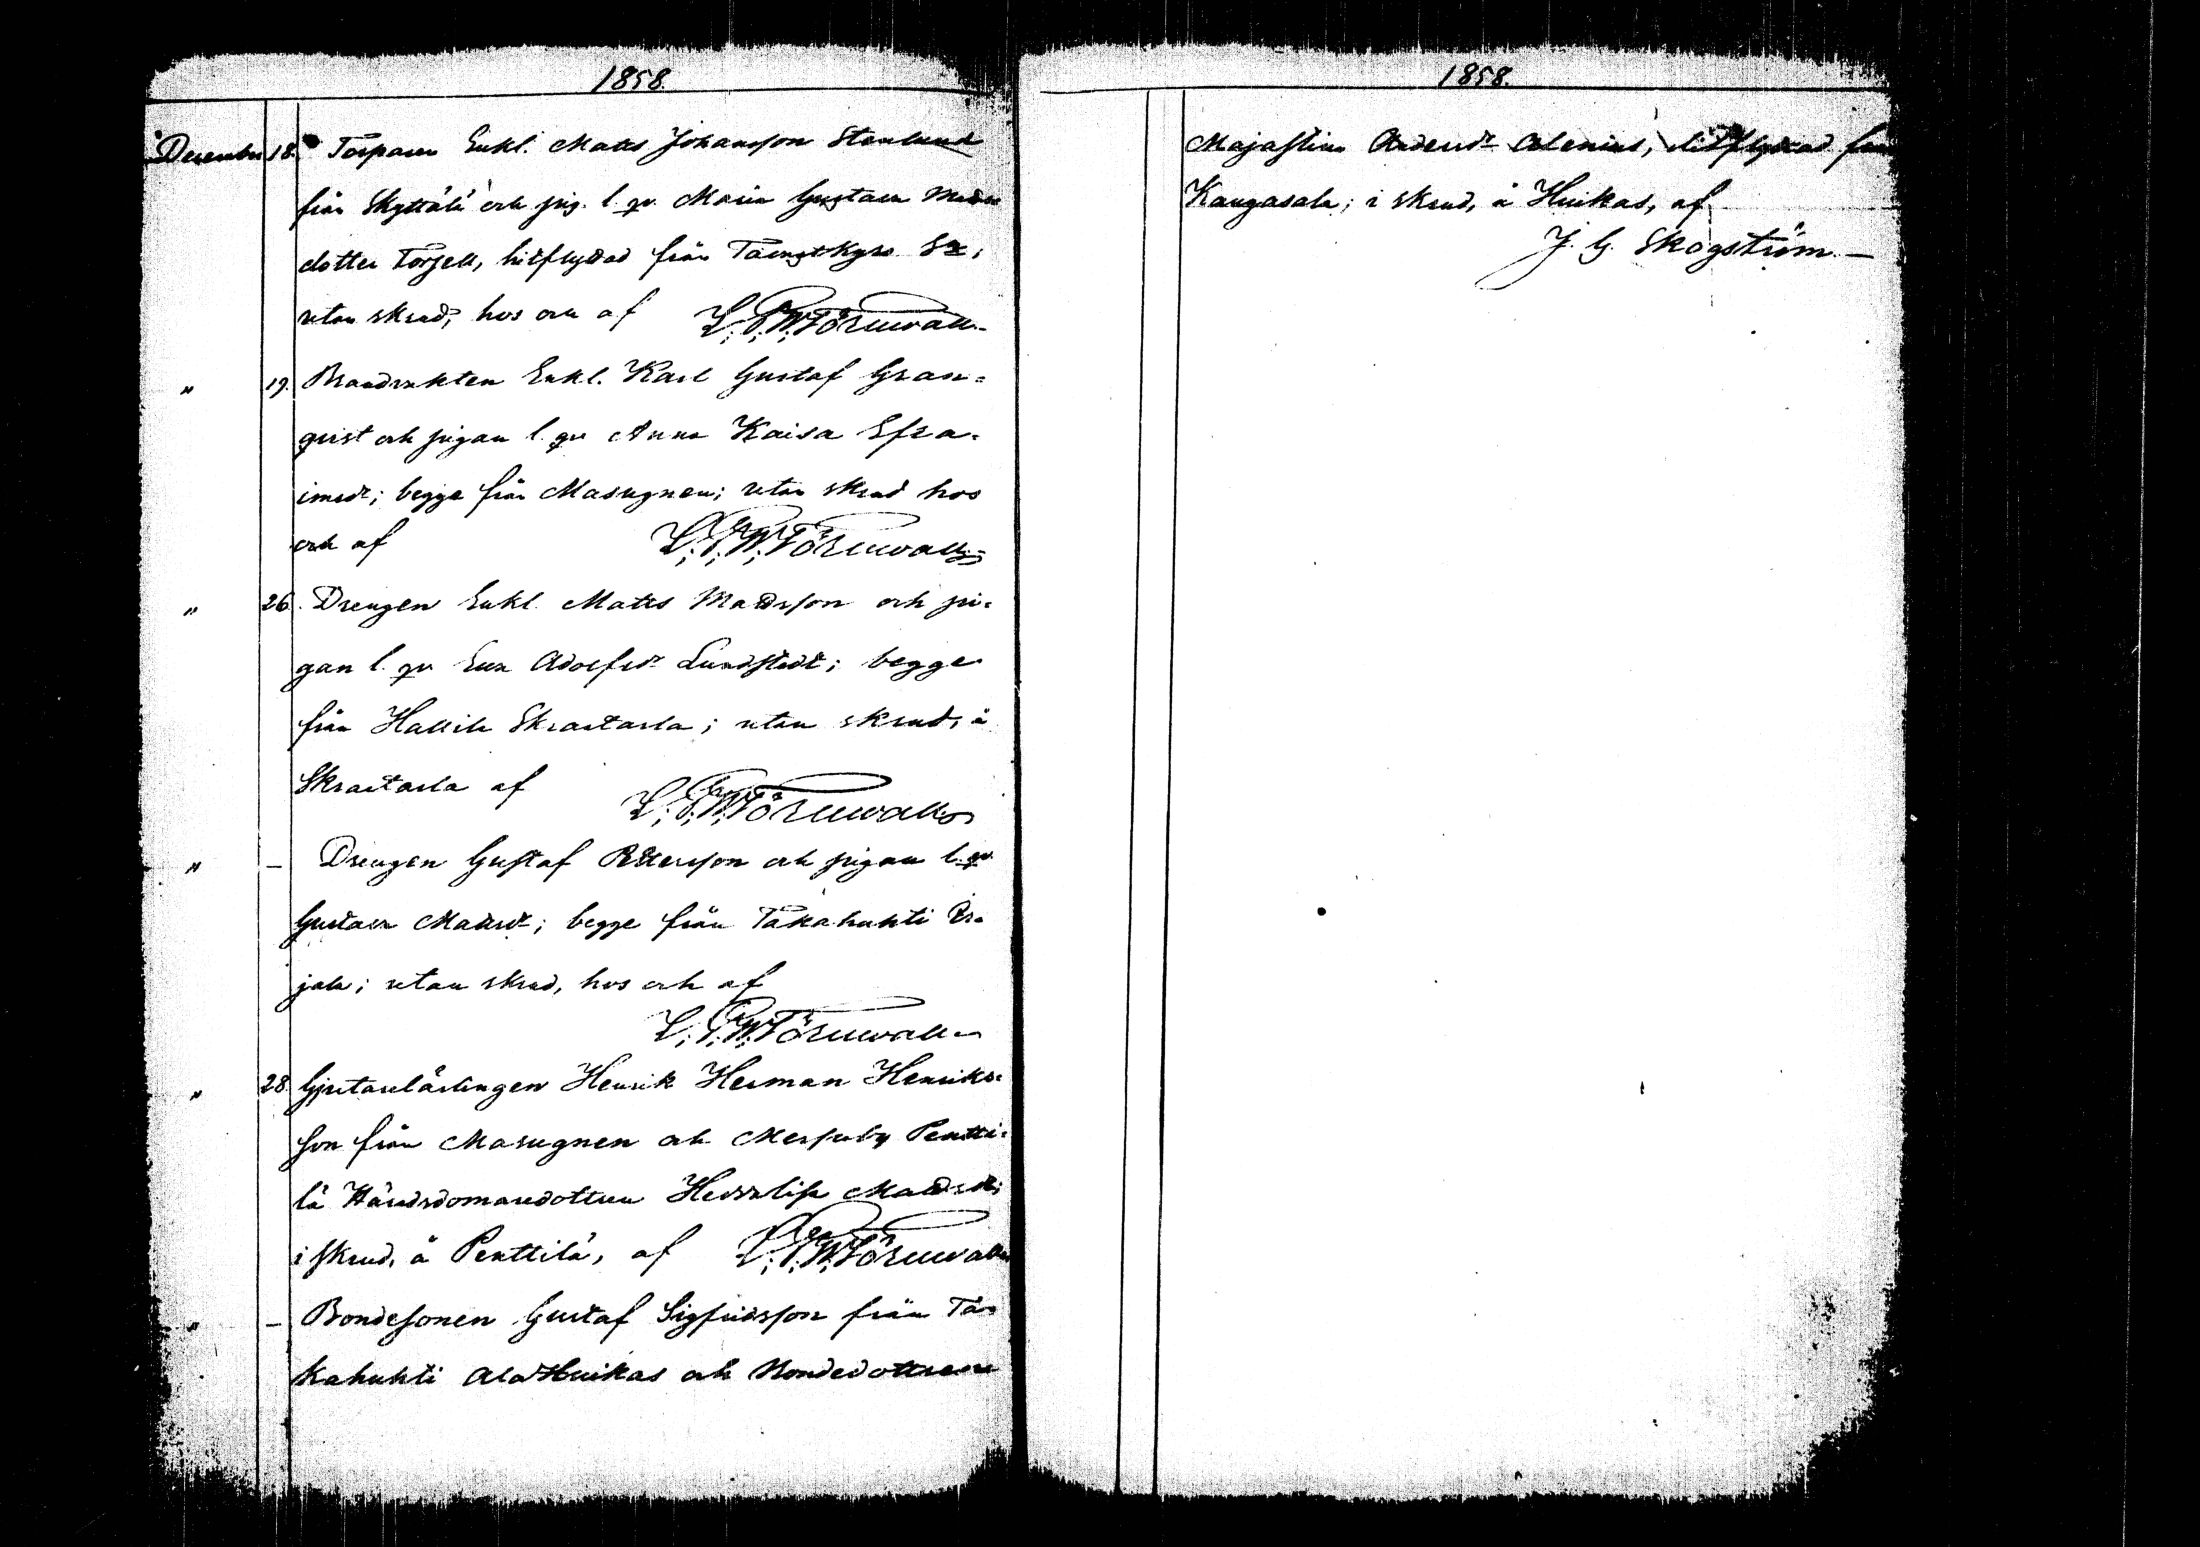 1858.
December 18. Torparen Enkl. Matts Johansson Stenlund
från Skyttälä och pig. l. qv. Maria Gustava Mads
dotter Forsell, hitflyttad från Tavastkyro Sn,
utan skrud, hos och af L. P. W. Törnwall
" 19. Brandvakten Enkl. Karl Gustaf Gran=
qvist och pigan l. qv. Anna Kaisa Efra=
imsdr; begge från Masugnen; utan skrud hos
och af L. P. W. Törnwall
" 26. Drengen Enkl. Matts Madsson och pi=
gan l. qv Eva Adolfsdr Lundstedt; begge
från Hallila Skraatarla; utan skrud, å
Skraatarla af L. P. W. Törnwall
" – Drengen Gustaf Pettersson och pigan l. qv.
Gustava Mattsdr; begge från Takahuhti
jala; utan skrud, hos och af
L. P. W. Törnwall
" 28. Gjutarelärlingen Henrik Herman Henriks=
son från Masugnen och Messuby Pentti=
lä Häradsdomaredottren Hedvalisa Madsdr;
i skrud, å Penttilä, af L. P. W. Törnwall
" – Bondesonen Gustaf Sigfridsson från Ta=
kahuhti Ala Huikas och Bondedottren
1858.
Majastina Andersdr Alenius, hitflyttad från
Kangasala; i skrud, å Huikas, af
J. G. Skogström.